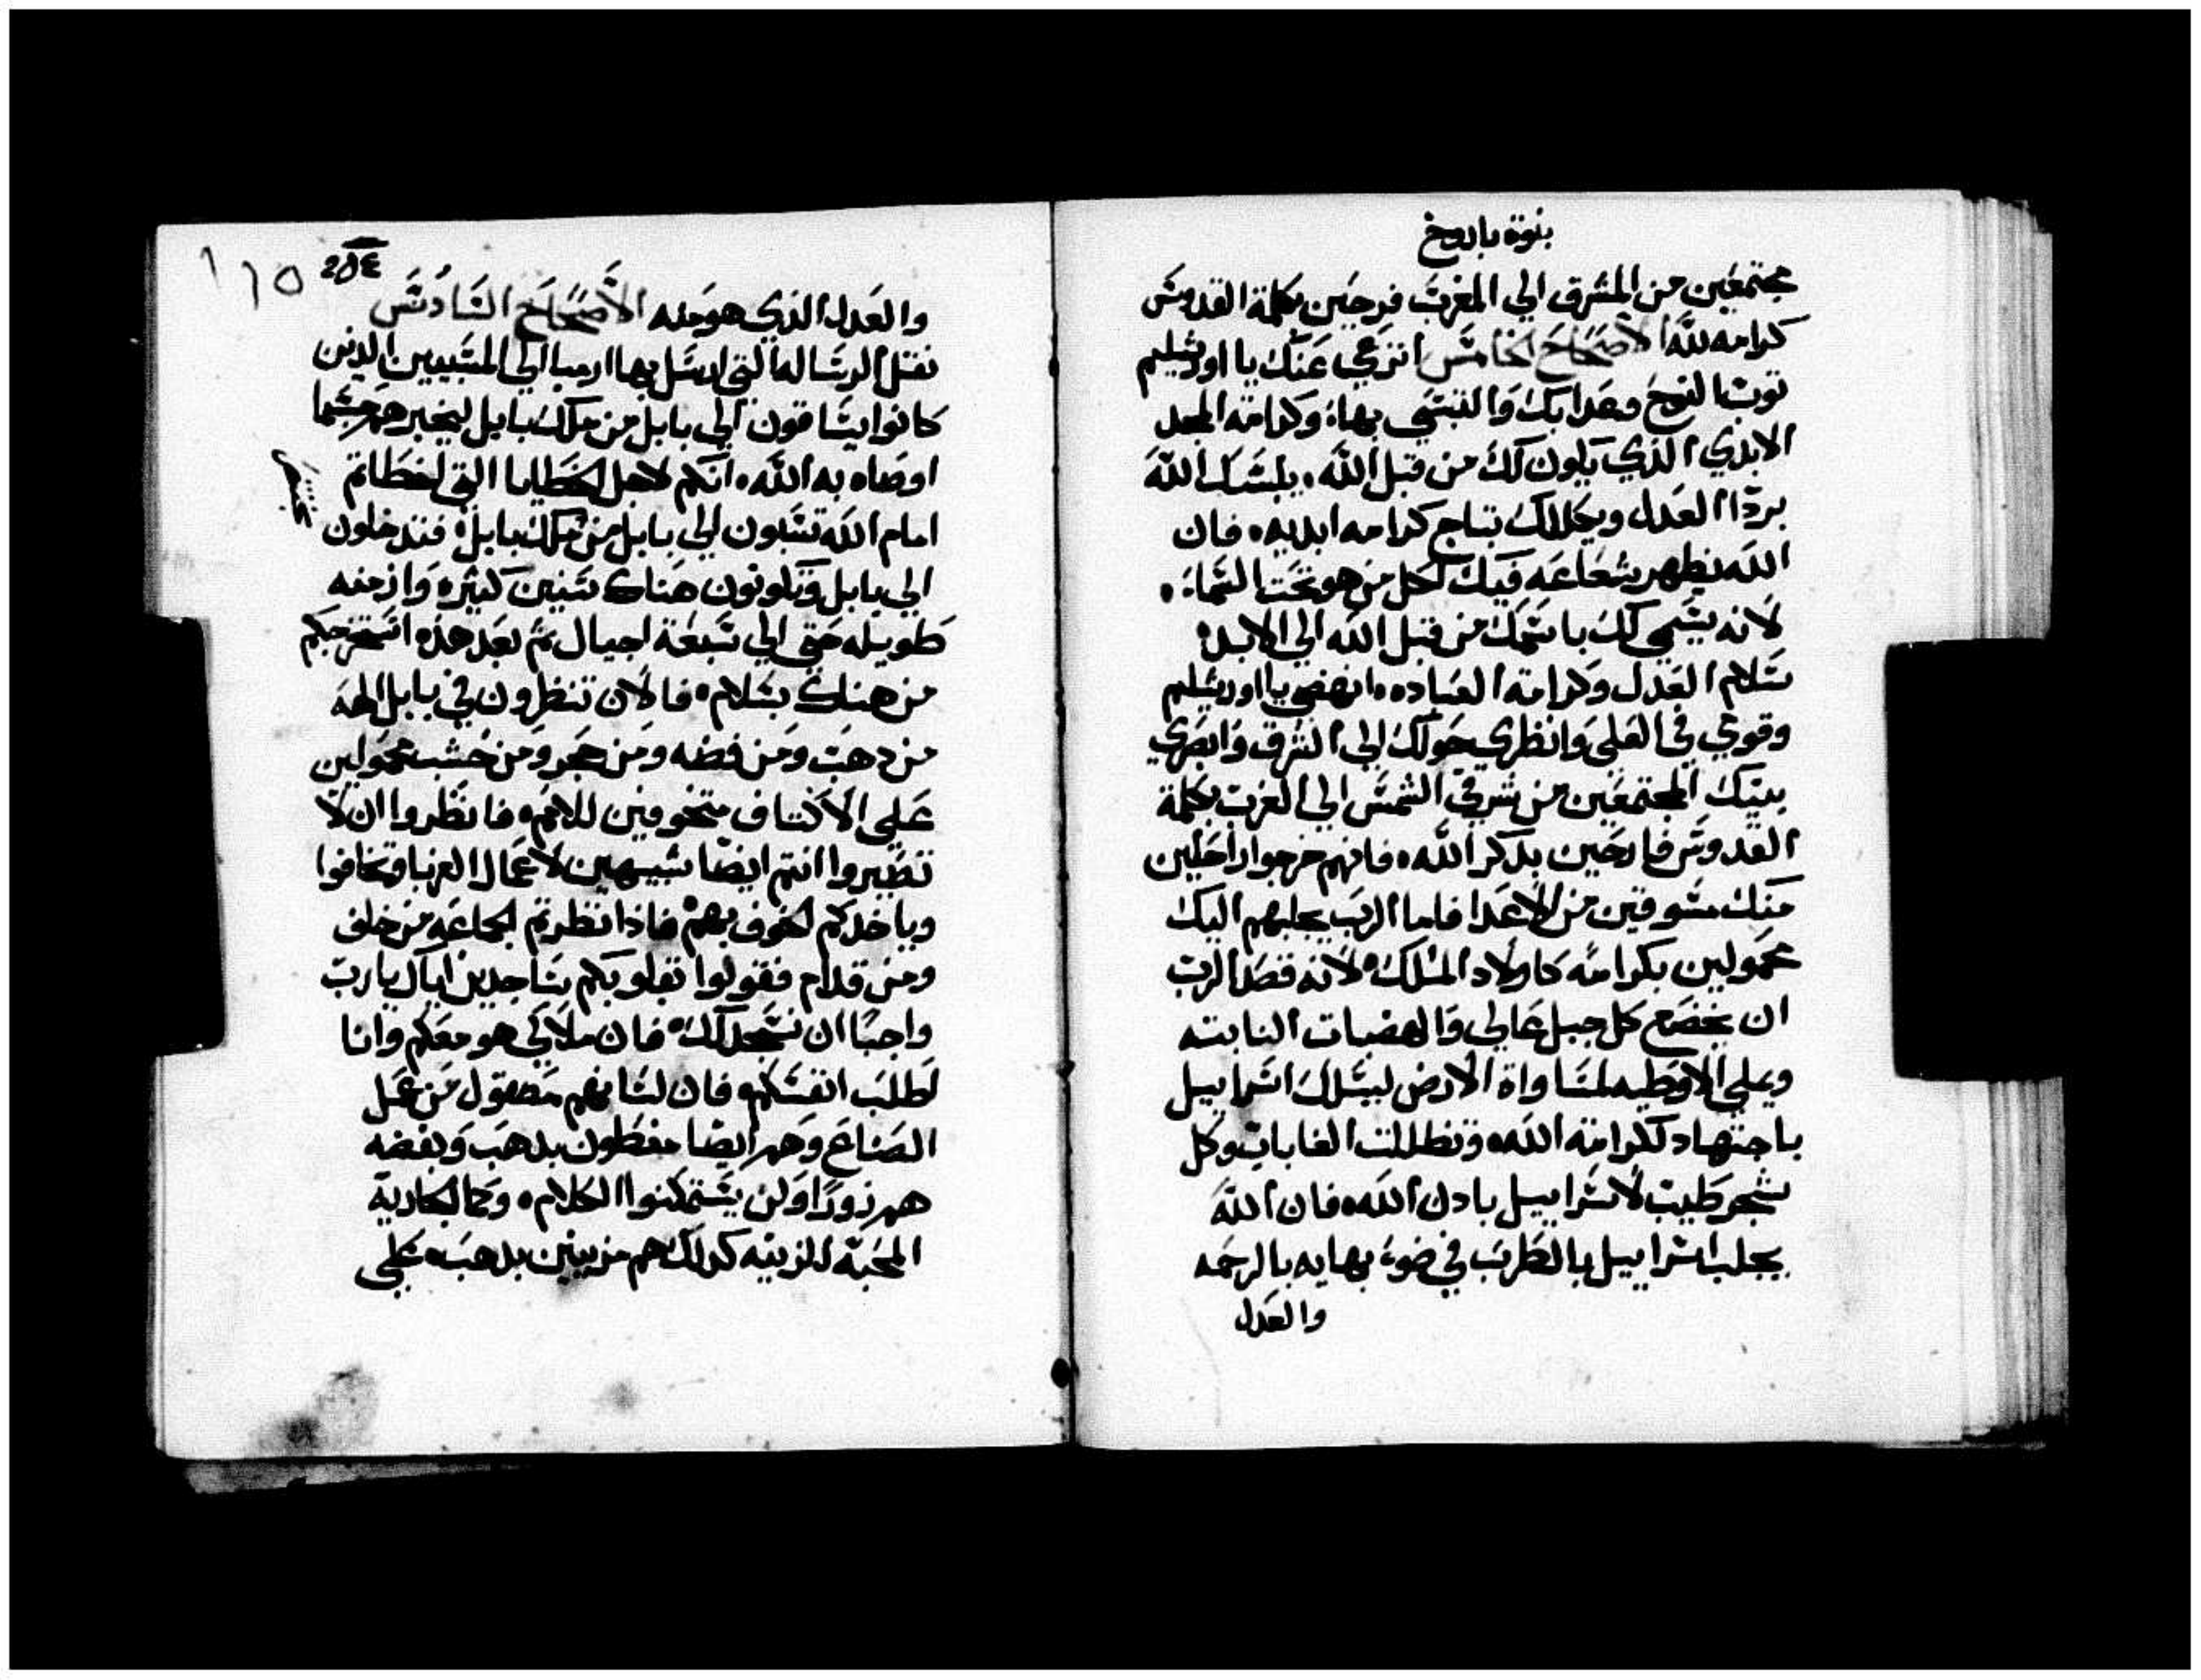 بنوة باروخ
مجتمعين من المشرق الي المغرب فرحين بكلمة القدوس
كرامه لله الاصحاح الخامس انزعي عنك يا اورشليم
توب النوح وعدابك والتبسي بهاء وكرامة المجد
الابدي الذي يكون لك من قبل الله. يلبسك الله
بردا العدل ويكللك بتاج كرامه ابديه. فان
الله يظهر شعاعه فيك لكل من هو تحت السماء.
لانه يسمي لك باسمك من قبل الله الي الابد
سلام العدل وكرامة العباده. انهضي يا اورشليم
وقومي في العلي وانظري حولك الي الشرق وابصري
بنيك المجتمعين من شرق الشمس الي الغرب بكلمة
القدوس فارحين بدكر الله. فانهم خرجوا راحلين
منك مسوقين من الاعدا فاما الرب يجلبهم اليك
محمولين بكرامه كاولاد الملك. لانه قصد الرب
ان يخضع كل جبل عالي والهضبات الثابته
ويملي الاوطيه لمساواة الارض ليسلك اسراييل
باجتهاد لكرامة الله. وتظللت الغابات وكل
شجر طيب لاسراييل بادن الله. فان الله
يجلب اسراييل بالطرب في ضوء بهايه بالرحمه
والعدل
110 254
والعدل الذي هو منه الاصحاح السادس
نقل الرساله التي ارسل بها ارميا الي المسبيين الذين
كانوا يساقون الي بابل من ملك بابل ليخبرهم حسبما
اوصاه به الله. انكم لاجل الخطايا التي اخطاتم
امام الله تسبون الي بابل من ملك بابل. فتدخلون
الي بابل وتكونون هناك سنين كثيره وازمنه
طويله حتي الي سبعة اجيال ثم بعد هذه استخرجكم
من هناك بسلام. فالان تنظرون في بابل الهه
من دهب ومن فضه ومن حجر ومن خشب محمولين
علي الاكتاف متخوفين للامم. فانظروا ان لا
تصيروا انتم ايضا شبيهين لاعمال الغربا وتخافوا
وياخدكم الخوف بهم فاذا نظرتم الجماعه من خلف
ومن قدام فقولوا بقلوبكم ساجدين اياك يارب
واجبا ان نسجد لك. فان ملاكي هو معكم وانا
اطلب انفسكم. فان لسانهم مصقول من عمل
الصناع وهم ايضا مغطون بدهب وبفضه
هم زورا ولن يستمكنوا الكلام. وكما لجارية
المحبة للزينه كدلك هم مزينين بدهب. علي